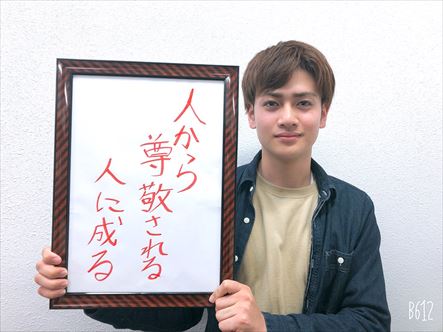 人から
尊敬される
人に成る
B612